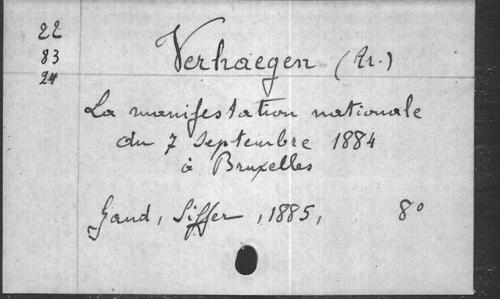 22
83
24
Verhaegen (Ar.)
La manifestation nationale
du 7 Septembre 1884
à Bruxelles
Gand, Siffer, 1885, 8°